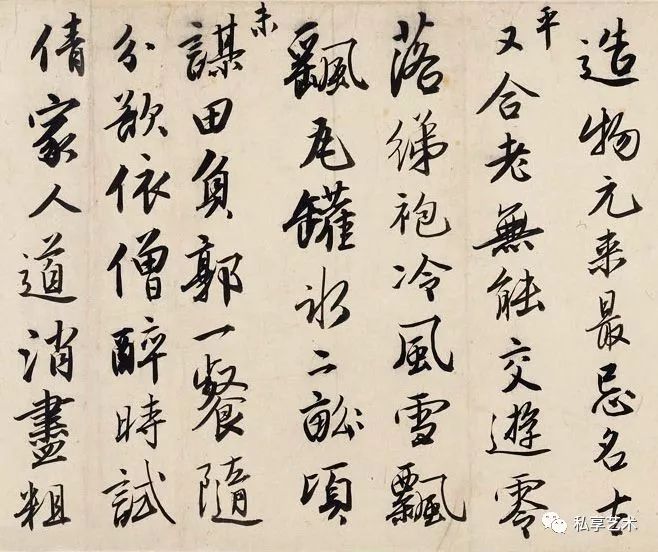 造物元来最忌名
平
又合老無能交遊零
落綈袍冷風雪飄
飄瓦罐冰二畝頃
未
謀田負郭一餐隨
分欲依僧醉時試
倩家人道消盡粗
私享艺术